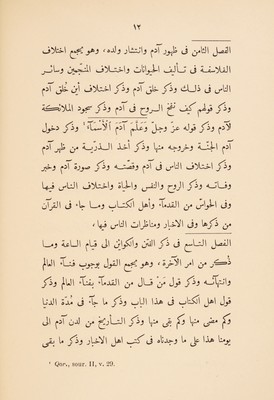 ١٢
الفصل الثامن فى ظهور آدم وانتشار ولده، وهو يجمع اختلاف
الفلاسفة فى تـأليف الحيوانات واختـلاف المنجّمين وسائـر
الناس فى ذلـك وذكر خلق آدم وذكر اختلاف أين خُلق آدم
وذكر قولهم كيف نُفخ الـروح فى آدم وذكر سجود الملائكة
لآدم وذكر قوله عزّ وجلّ وَعَلَّمَ آدَمَ ٱلْأَسْمَآءَ ¹ وذكر دخول
آدم الجنّـة وخروجه منها وذكر أخذ الـذرّيـة من ظهر آدم
وذكر اختـلاف الناس فى آدم وقصّتـه وذكر صورة آدم وخبر
وفـاتـه وذكر الروح والنفس والحياة واختلاف الناس فيها
وفى الحواسّ من القدمآء وأهل الكتـاب وما جاء فى القرآن
من ذكرها وفى الاخبار ومناظرات الناس فيها،
الفصل التـاسع فى ذكر الفتن والكوائن الى قيام الساعة ومـا
ذُكـر من امر الآخرة، وهو يجمع القول بوجوب فنـآء العالم
وانتهآئـه وذكر قول مَن قـال من القدمآء بفنـآء العالم وذكر
قول اهل الكتاب فى هذا الباب وذكر ما جآء فى مُدّة الدنيا
وكم مضى منها وكم بقى منها وذكر التـأريخ من لدن آدم الى
يومنا هذا على ما وجدناه فى كتب اهل الاخبار وذكر ما بقى
¹ Qor., sour. II, v. 29.